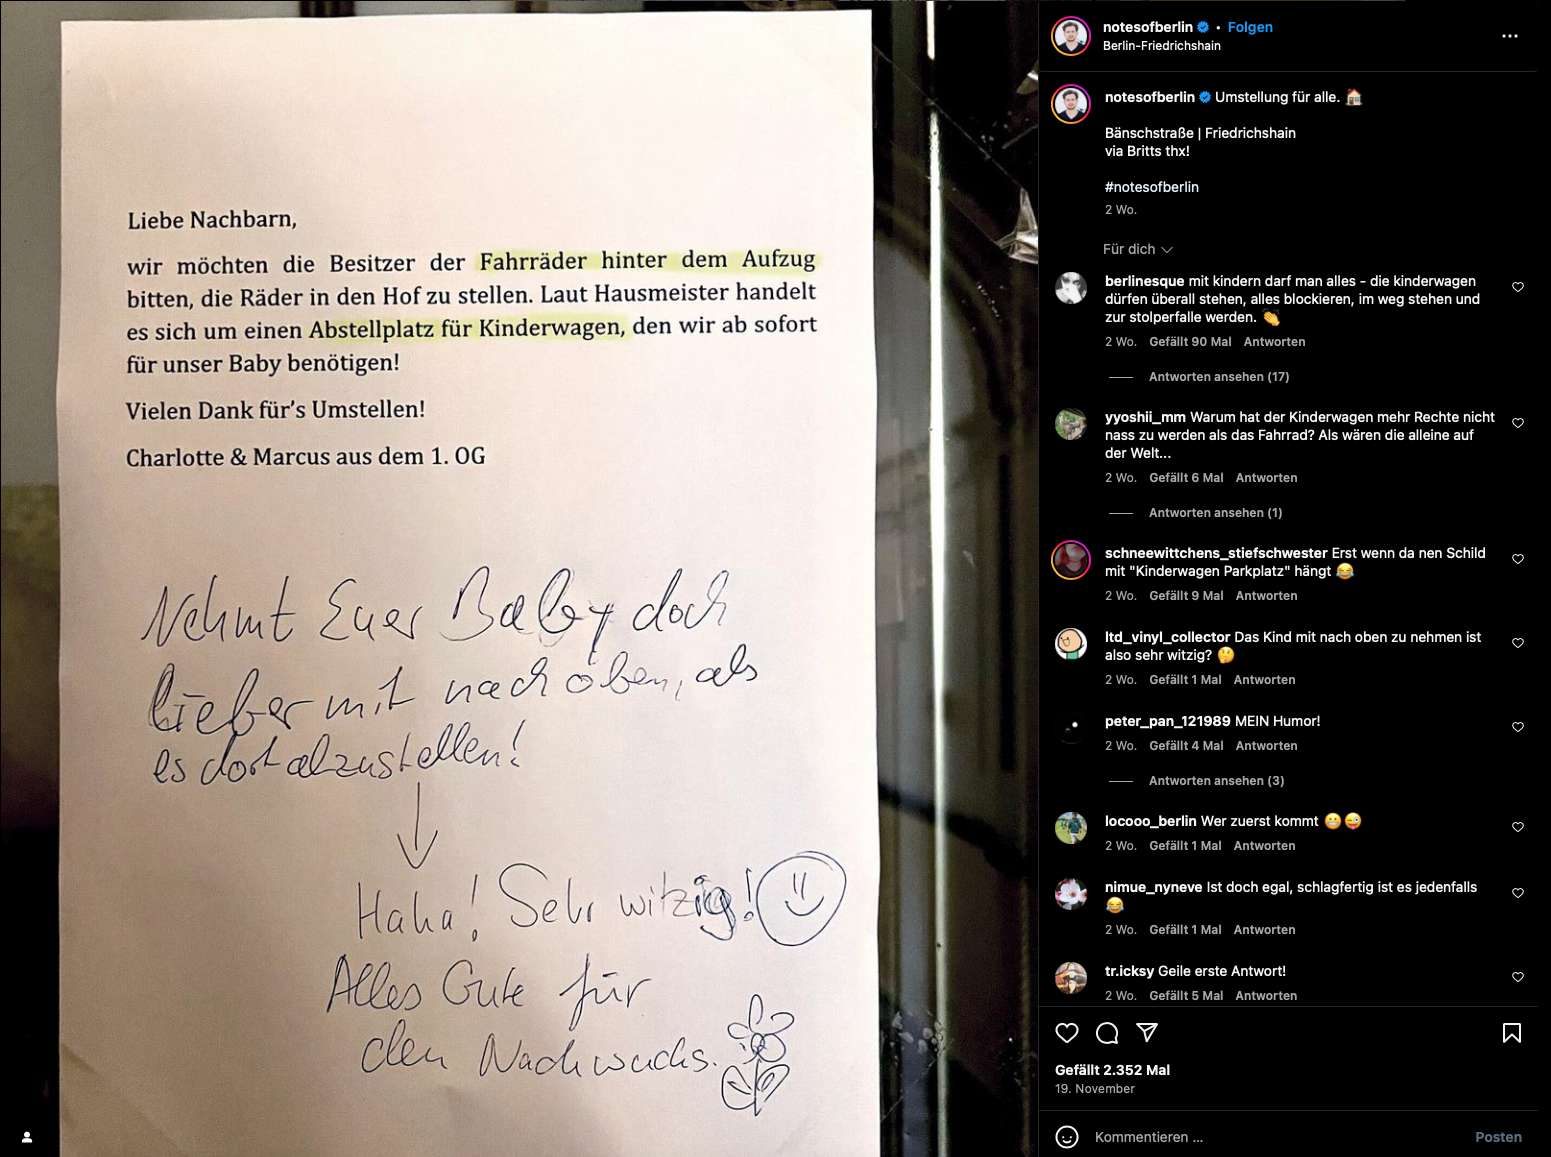 Liebe Nachbarn,
wir möchten die Besitzer der Fahrräder hinter dem Aufzug
bitten, die Räder in den Hof zu stellen. Laut Hausmeister handelt
es sich um einen Abstellplatz für Kinderwagen, den wir ab sofort
für unser Baby benötigen!
Vielen Dank für's Umstellen!
Charlotte & Marcus aus dem 1. OG
Nehmt Euer Baby doch
lieber mit nach oben, als
es dort abzustellen!
Haha! Sehr witzig!
Alles Gute für
den Nachwuchs.
notesofberlin • Folgen
Berlin-Friedrichshain
notesofberlin Umstellung für alle. 🏠
Bänschstraße | Friedrichshain
via Britts thx!
#notesofberlin
2 Wo.
Für dich
berlinesque mit kindern darf man alles - die kinderwagen
dürfen überall stehen, alles blockieren, im weg stehen und
zur stolperfalle werden. 👏
2 Wo. Gefällt 90 Mal Antworten
Antworten ansehen (17)
yyoshii_mm Warum hat der Kinderwagen mehr Rechte nicht
nass zu werden als das Fahrrad? Als wären die alleine auf
der Welt...
2 Wo. Gefällt 6 Mal Antworten
Antworten ansehen (1)
schneewittchens_stiefschwester Erst wenn da nen Schild
mit "Kinderwagen Parkplatz" hängt 😂
2 Wo. Gefällt 9 Mal Antworten
ltd_vinyl_collector Das Kind mit nach oben zu nehmen ist
also sehr witzig? 🤔
2 Wo. Gefällt 1 Mal Antworten
peter_pan_121989 MEIN Humor!
2 Wo. Gefällt 4 Mal Antworten
Antworten ansehen (3)
locooo_berlin Wer zuerst kommt 😬😜
2 Wo. Gefällt 1 Mal Antworten
nimue_nyneve Ist doch egal, schlagfertig ist es jedenfalls
😂
2 Wo. Gefällt 1 Mal Antworten
tr.icksy Geile erste Antwort!
2 Wo. Gefällt 5 Mal Antworten
Gefällt 2.352 Mal
19. November
Kommentieren ...
Posten